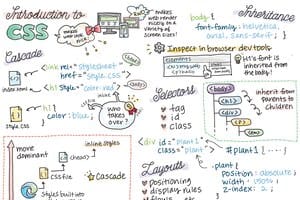 Introduction to
CSS
makes
web render
nicely in a
variety of
screen sizes!
body {
font-family: helvetica,
arial, sans-serif; }
Inheritance
Inspect in browser dev tools
Elements
H1's font is
inherited
from the
body!
Cascade
<link rel="stylesheet"
href="style.css"
index.html
<h1 style="color: red"
h1 {
color: blue; }
style.css
who
takes
over?
Selectors
tag
id
class
<body>
<div>
<h1>
<p>
inherit from
parents to
children
<div id="plant1"
class=
#plant1 {
.plant {
position: absolute;
width: 150%;
z-index: 2;
Layouts
positioning
display rules
flows
more
dominant
inline styles
(head)
CSS file
Cascade
styles built into